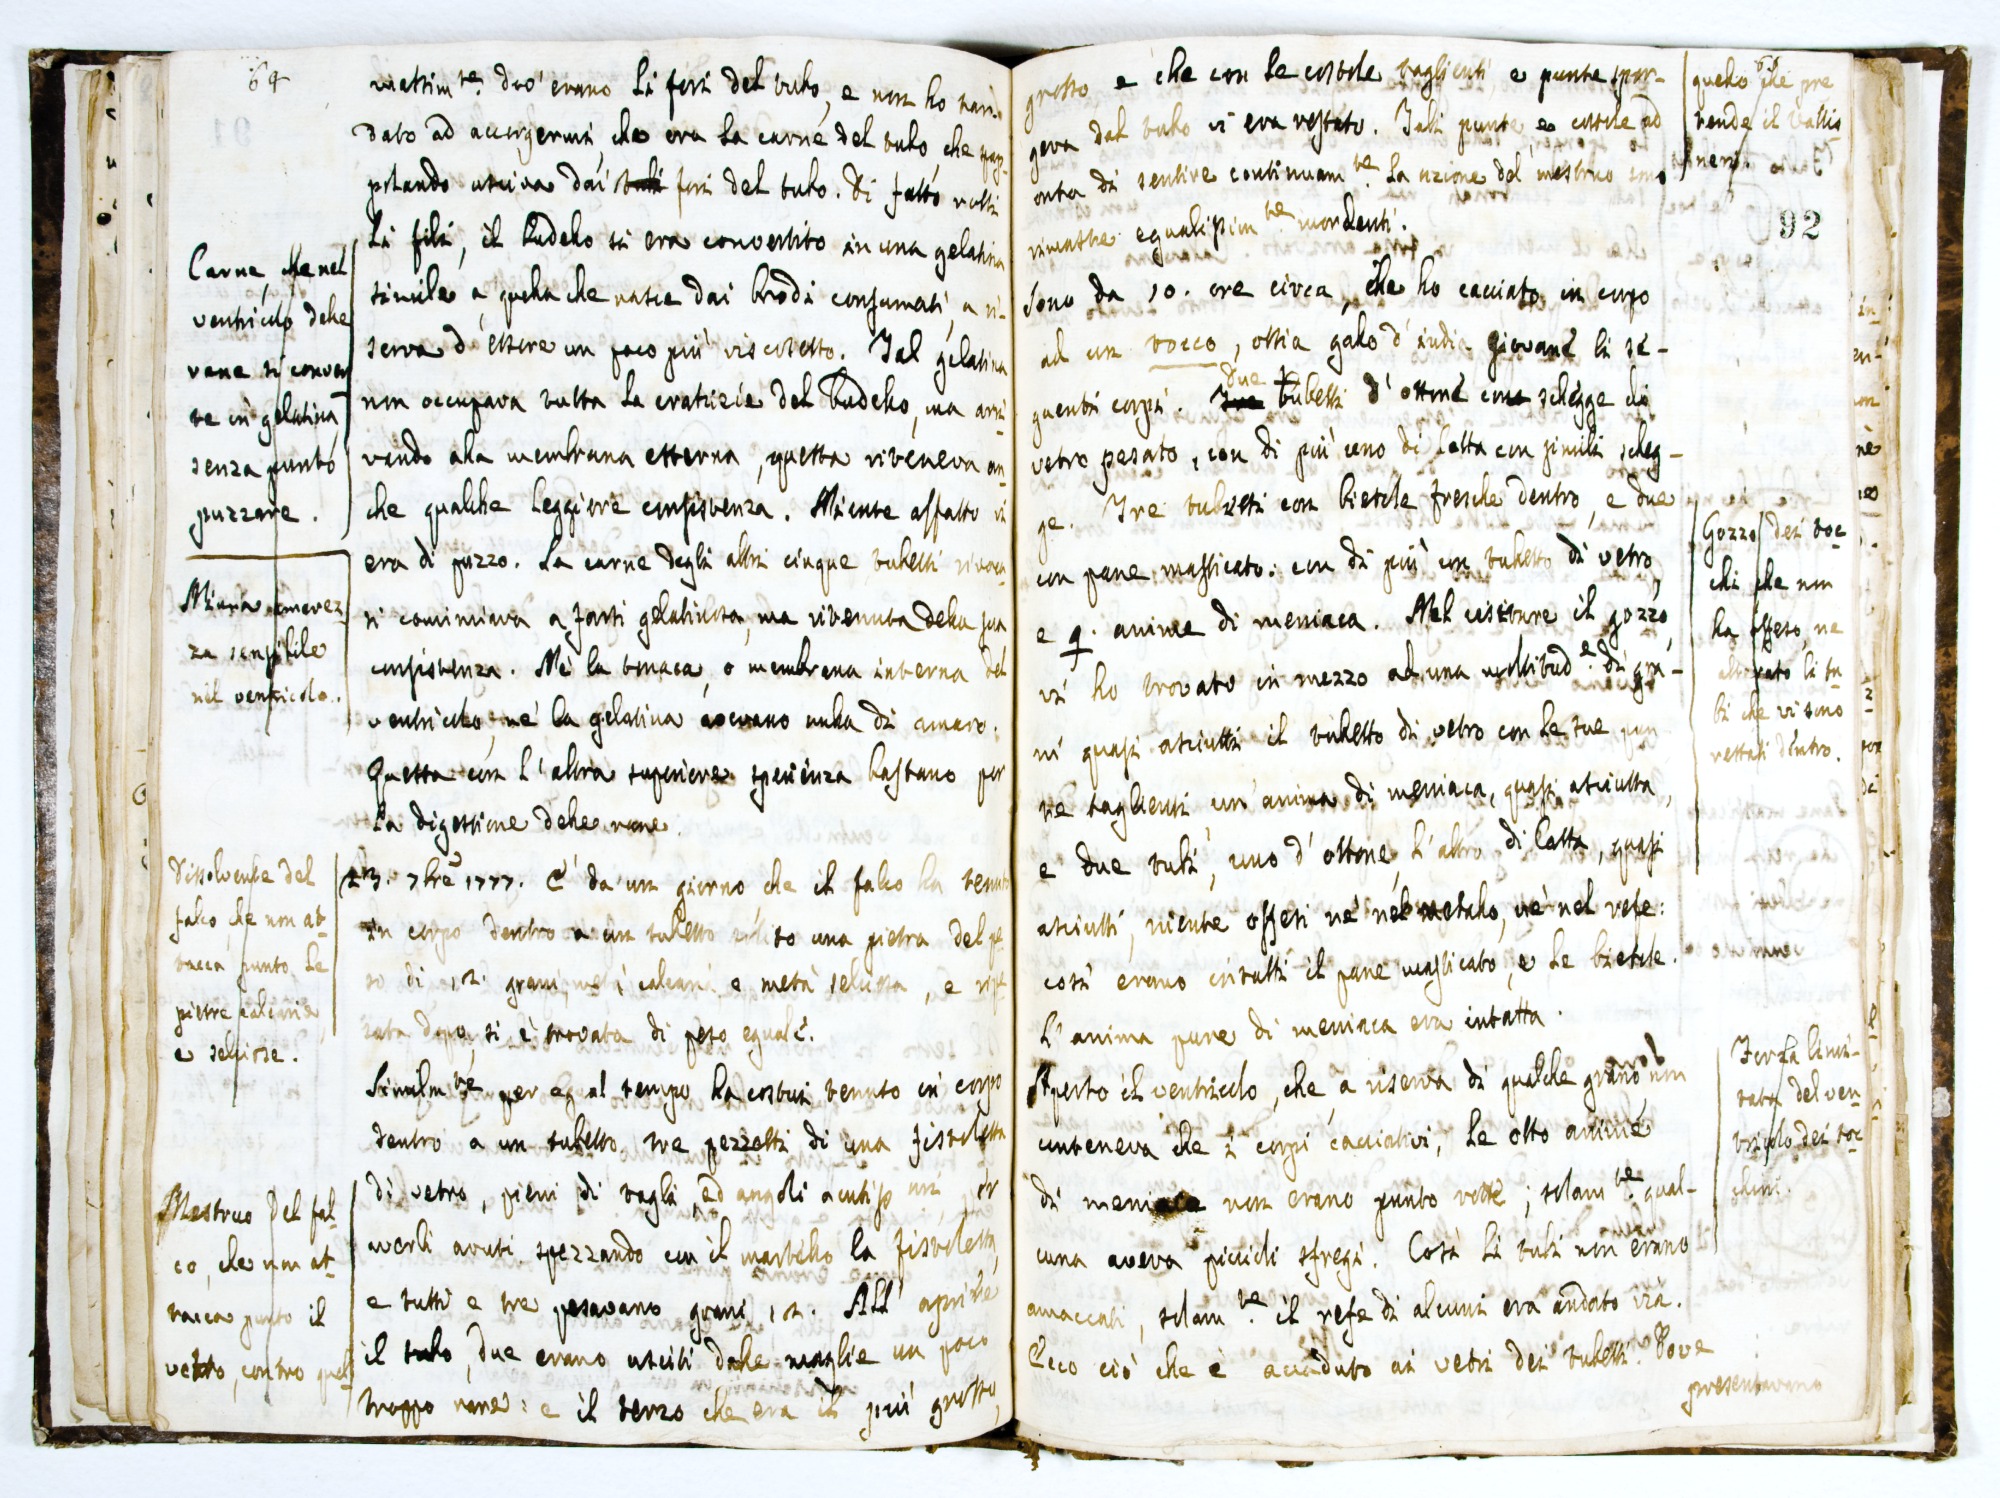 64
massim.te dov'erano li fori del tubo, e non ho tar-
dato ad accorgermi che era la carne del tubo, che
pilando usciva dai tubi fori del tubo. Di fatto rotti
li fili, il budello si era convertito in una gelatina
simile a quella che nasce dai brodi consumati, a ri-
serva d'essere un poco più viscosetto. Tal gelatina
non occupava tutta la cratizie del budello, ma arri-
vando alla membrana esterna, questa riteneva an-
che qualche leggiere consistenza. Niente affatto vi
era di puzzo. La carne degli altri cinque tubetti
si cominciava a farsi gelatinosa, ma ritenuta della sua
consistenza. Nè la tonaca, o membrana interna del
ventricolo, nè la gelatina avevano nulla di amaro.
Questa con l'altra superiore sperienza bastano per
la digestione delle rane.
Carne, che nel
ventricolo delle
rane si conver
te in gelatina
senza punto
puzzare.
Niuna amarez-
za sensibile
nel ventricolo.
7bre 1777. È da un giorno che il falco ha tenuto
in corpo dentro a un tubetto una pietra del pe
so di 12. grani, metà calcari e metà selciosa, e
dopo, si è trovata di peso eguale.
Dissolvente del
falco, che non at-
tacca punto le
pietre calcarie,
e selciose.
Similm.te per egual tempo ha costui tenuto in corpo
dentro a un tubetto tre pezzetti di una fistoletta
di vetro, pieni di tagli, ed angoli acutiss.mi, per
averli avuti spezzando con il martello la fistoletta,
e tutti e tre pesavano grani 12. All' aprire
il tubo, due erano usciti dalle maglie un poco
troppo rare: e il terzo che era il più grosso,
Mestruo del fal-
co, che non at-
tacca punto il
vetro, contro quel
65
grosso e che con le costole taglienti e punte spor-
geva dal tubo vi era restato. Tali punte e costole ad
onta di sentire continuam.te la azione del mestruo sono
rimaste egualissim.te mordenti.
quello che pre
tende il Vallis-
neri.
92
Sono da 10. ore circa, che ho cacciato in corpo
ad un tocco, ossia gallo d'india giovane li se-
guenti corpi. Tre due tubetti d'ottone con schegge di
vetro pesato, con di più uno di latta con simili scheg-
ge. Tre tubetti con bietole fresche dentro, e due
con pane masticato: con di più un tubetto di vetro,
e 9. anime di meniaca. Nel visitare il gozzo,
vi ho trovato in mezzo ad una moltitud.e di gra-
ni quasi asciutti il tubetto di vetro con le sue pun
te taglienti un'anima di meniaca, quasi asciutta,
e due tubi, uno d'ottone, l'altro di latta, quasi
asciutti, niente offesi nè nel metallo, nè nel refe:
così erano intatti il pane masticato, e le bietole.
L'anima pure di meniaca era intatta.
Gozzo dei toc-
chi che non
ha offeso, nè
alterato li tu-
bi che vi sono
restati dentro.
Aperto il ventricolo, che, a riserva di qualche grano, non
conteneva che i corpi cacciativi, le otto anime
di meniaca non erano punto rotte; solam.te qual-
cuna aveva piccioli sfregi. Così li tubi non erano
amaccati, solam.te il refe di alcuni era andato via.
Ecco ciò che è accaduto ai vetri dei tubetti. Dove
presentavano
Forza limi-
tata del ven-
tricolo dei toc-
chini.